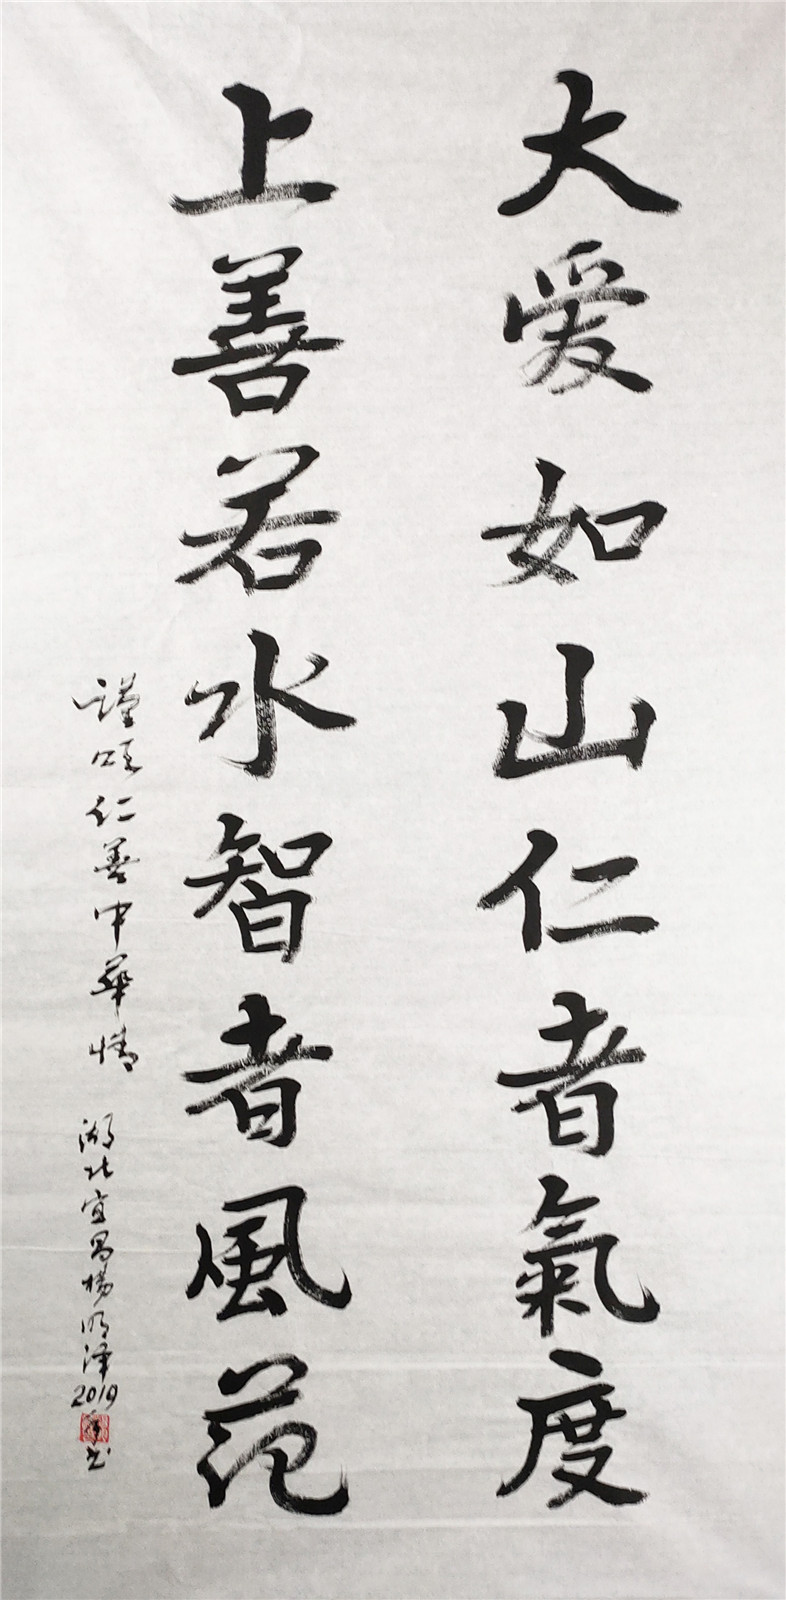 大爱如山仁者氣度
上善若水智者風范
謹頌仁善中華情 湖北宜昌楊明泽2019年书